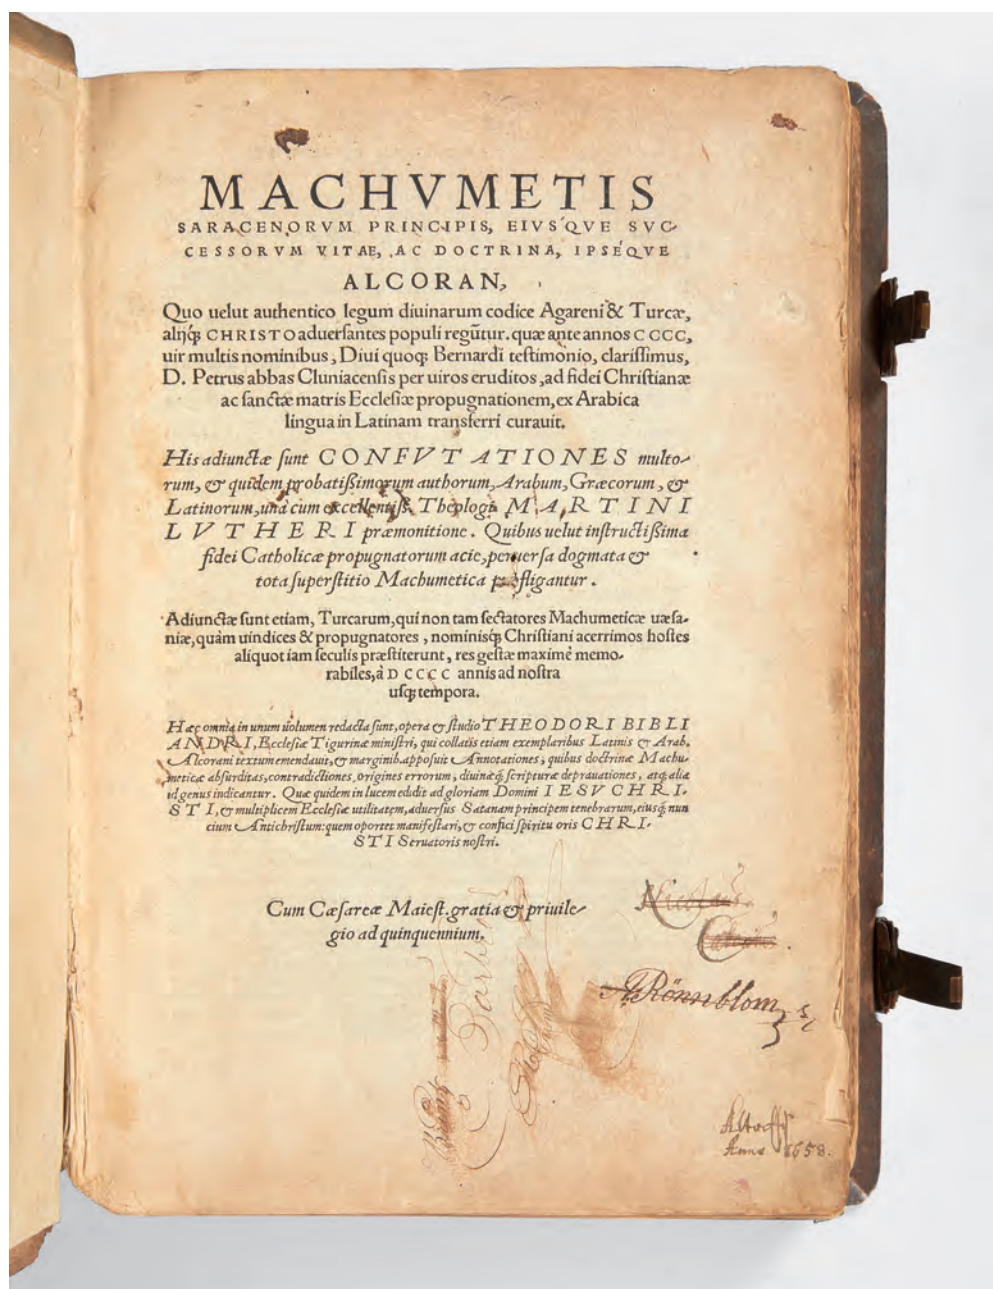 MACHVMETIS
SARACENORVM PRINCIPIS, EIVS'QVE SVC-
CESSORVM VITAE, AC DOCTRINA, IPSÉQVE
ALCORAN,
Quo uelut authentico legum diuinarum codice Agareni & Turcæ,
alijq́; CHRISTO aduerſantes populi regūtur. quæ ante annos CCCC,
uir multis nominibus, Diui quoq; Bernardi teſtimonio, clariſſimus,
D. Petrus abbas Cluniacenſis per uiros eruditos, ad fidei Chriſtianæ
ac ſanctæ matris Eccleſiæ propugnationem, ex Arabica
lingua in Latinam transferri curauit.
His adiunctæ ſunt CONFVTATIONES multo-
rum, & quidem probatiſsimorum authorum, Arabum, Græcorum, &
Latinorum, unà cum excellentiſs. Theologi MARTINI
LVTHERI præmonitione. Quibus uelut inſtructiſsima
fidei Catholicæ propugnatorum acie, peruerſa dogmata &
tota ſuperſtitio Machumetica profligantur.
Adiunctæ ſunt etiam, Turcarum, qui non tam ſectatores Machumeticæ uæſa-
niæ, quàm uindices & propugnatores, nominisq́; Chriſtiani acerrimos hoſtes
aliquot iam ſeculis præſtiterunt, res geſtæ maximè memo-
rabiles, à DCCCC annis ad noſtra
uſq; tempora.
Hæc omnia in unum uolumen redacta ſunt, opera & ſtudio THEODORI BIBLI
ANDRI, Eccleſiæ Tigurinæ miniſtri, qui collatis etiam exemplaribus Latinis & Arab.
Alcorani textum emendauit, & marginib. appoſuit Annotationes, quibus doctrinæ Machu-
meticæ abſurditas, contradictiones, origines errorum, diuinæq́; ſcripturæ deprauationes, atq; alia
id genus indicantur. Quæ quidem in lucem edidit ad gloriam Domini IESV CHRI-
STI, & multiplicem Eccleſiæ utilitatem, aduerſus Satanam principem tenebrarum, eiusq́; nun
cium Antichriſtum: quem oportet manifeſtari, & confici ſpiritu oris CHRI-
STI Seruatoris noſtri.
Cum Cæſareæ Maieſt. gratia & priuile-
gio ad quinquennium.
Rönnblom
1658.